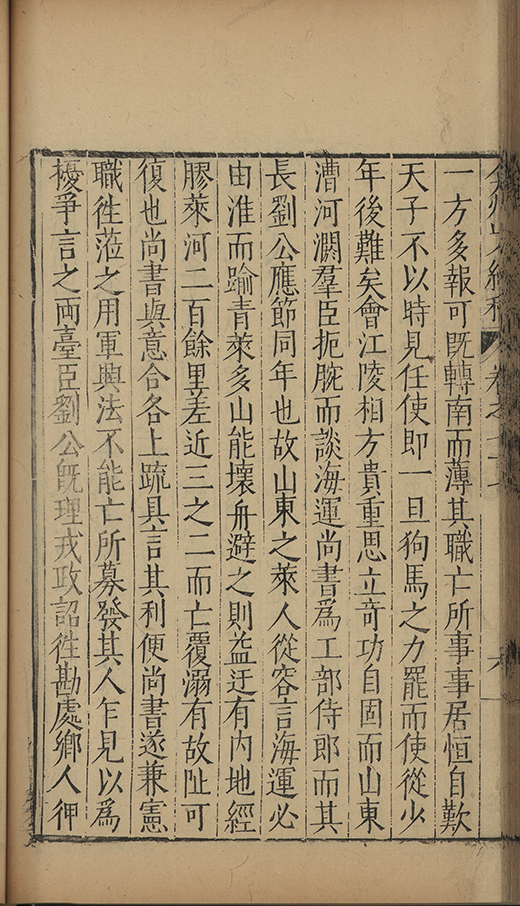 一方多報可既轉南而薄其職亡所事事居恒自歎
天子不以時見任使即一旦狗馬之力罷而使從少
年後難矣會江陵相方貴重思立奇功自固而山東
漕河澗羣臣扼腕而談海運尚書爲工部侍郎而其
長劉公應節同年也故山東之萊人從容言海運必
由淮而踰青萊多山能壞舟避之則益迂有内地經
膠萊河二百餘里差近三之二而亡覆溺有故阯可
復也尚書與意合各上疏具言其利便尚書遂兼憲
職徃蒞之用軍興法不能亡所募發其人乍見以爲
擾爭言之兩臺臣劉公旣理戎政詔徃勘處鄉人狎